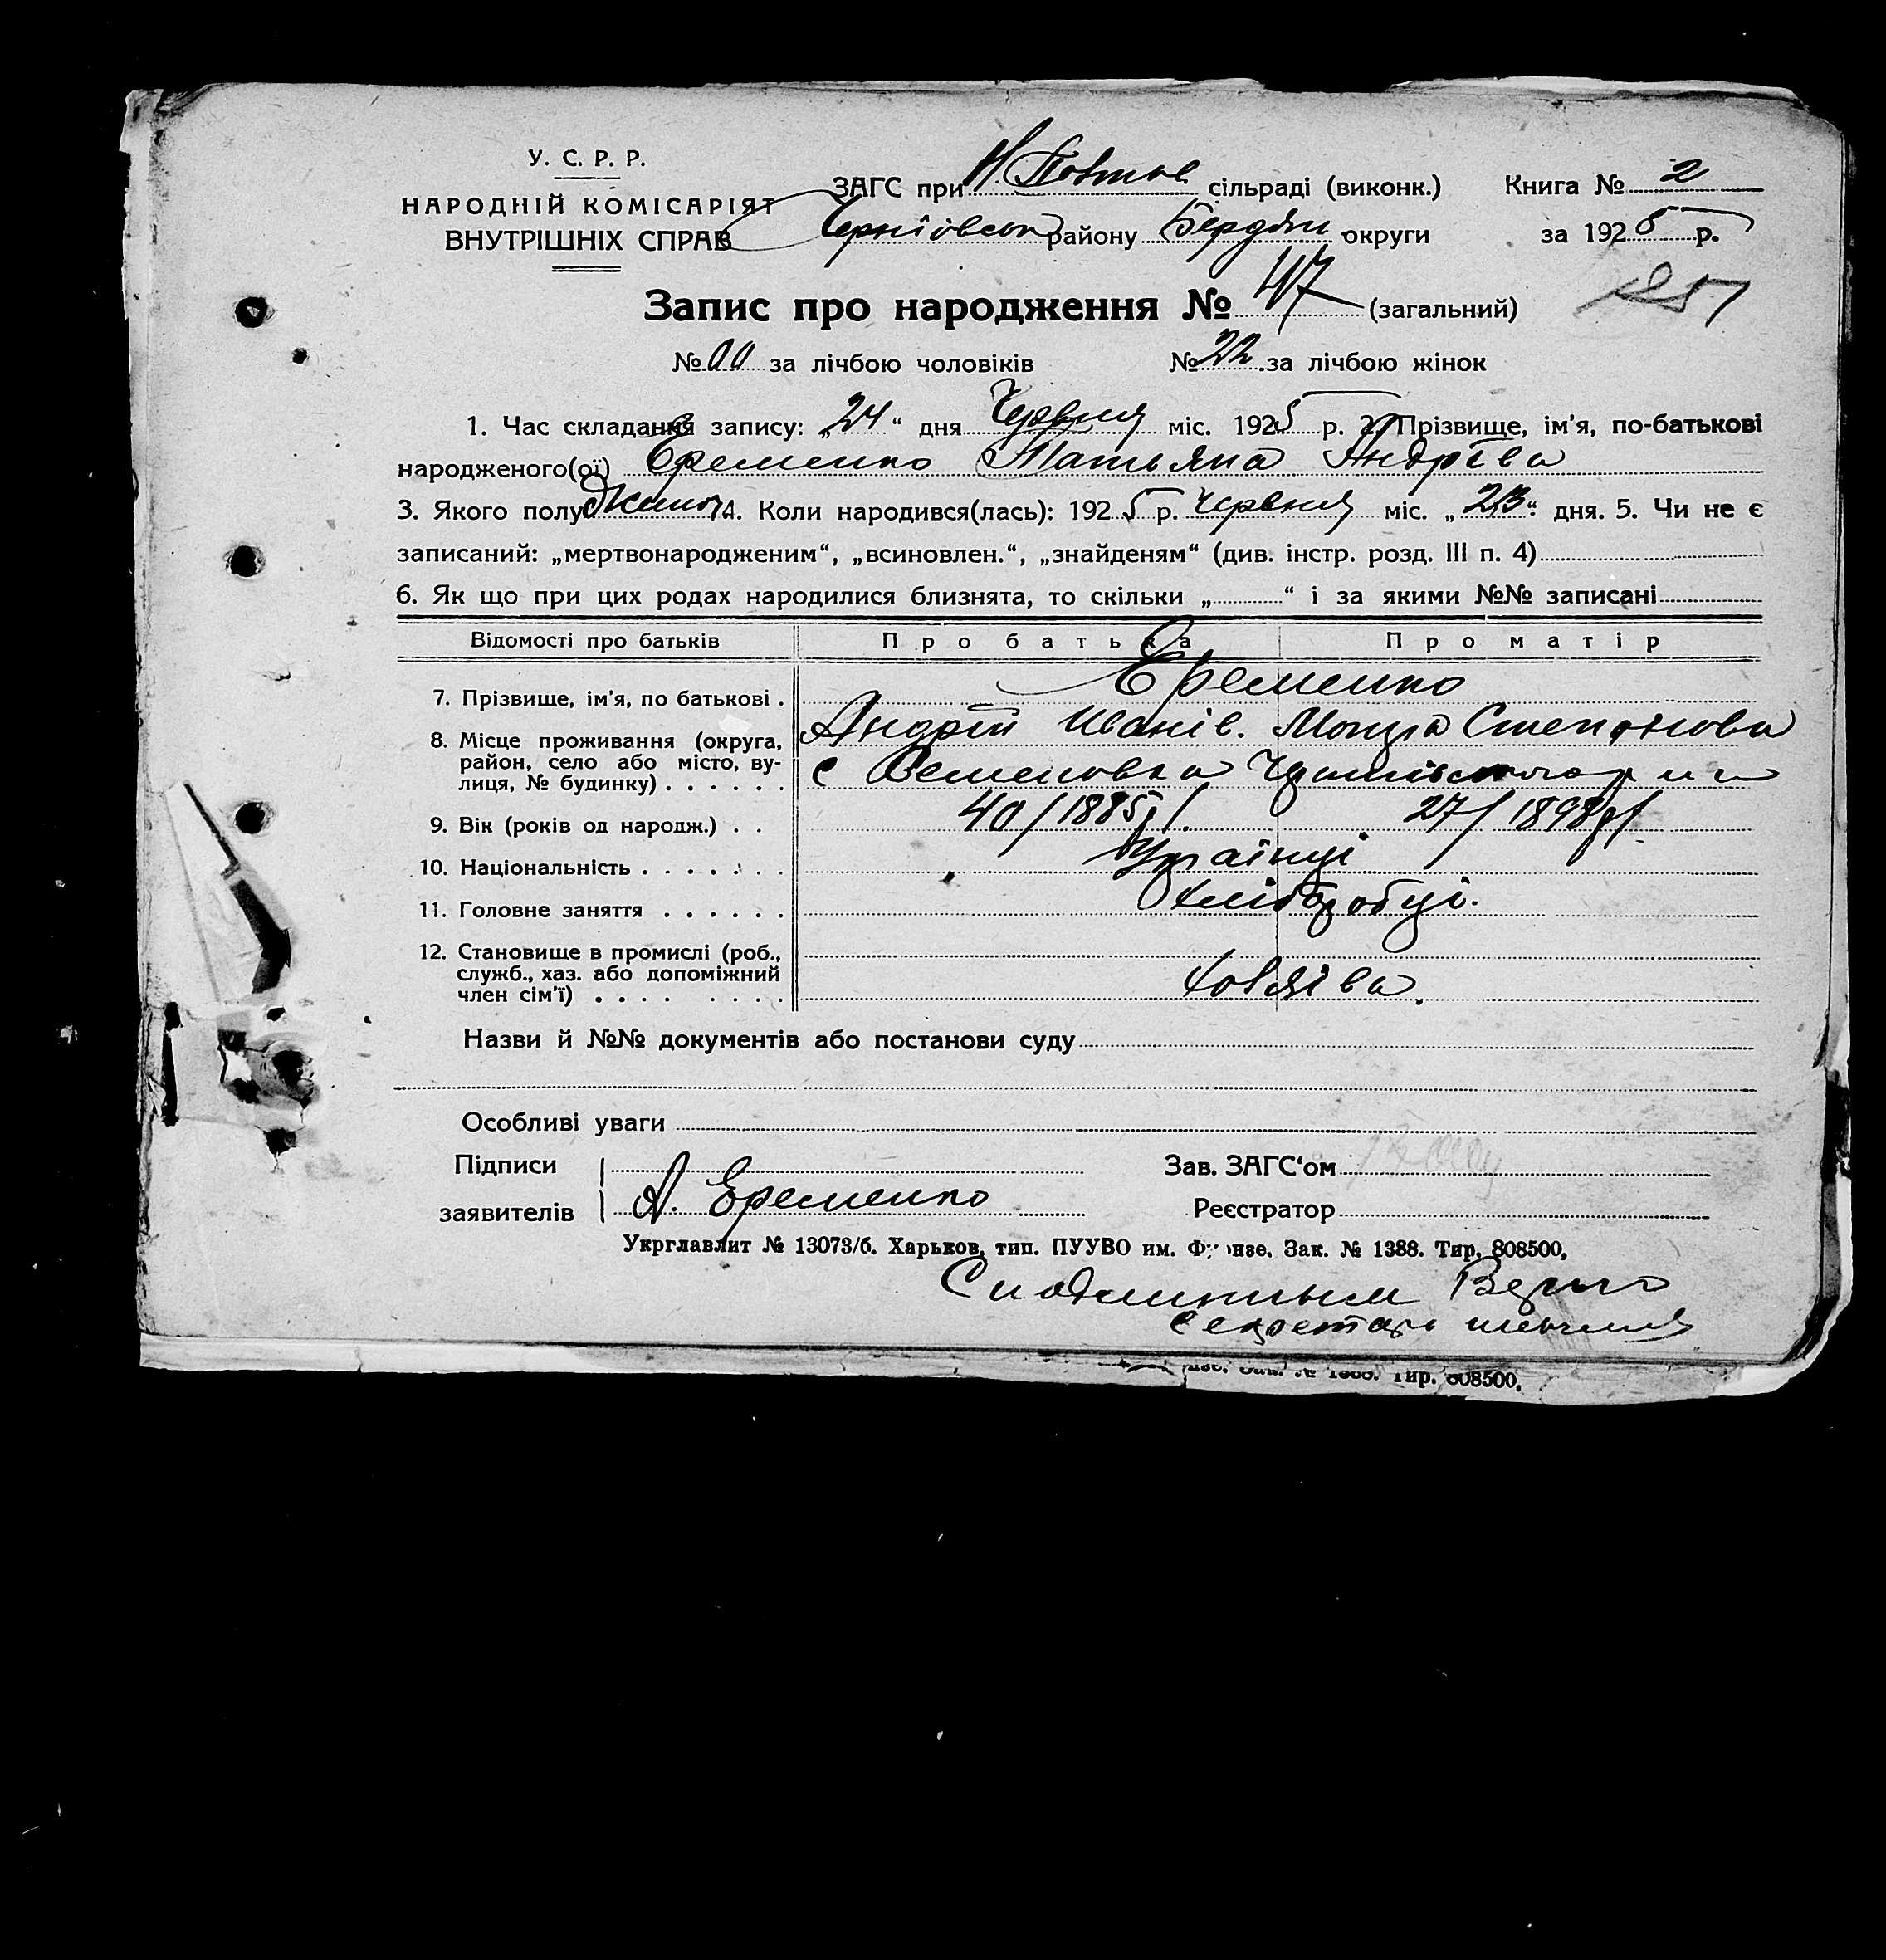 У. С. Р. Р.
НАРОДНІЙ КОМІСАРІЯТ
ВНУТРІШНІХ СПРАВ
ЗАГС при Н. сільраді (виконк.) Книга № 2
району Бердян округи за 1925 р.
Запис про народження № 47 (загальний)
№ за лічбою чоловіків № 22 за лічбою жінок
1. Час складання запису: „24“ дня Червня міс. 1925 р. 2. Прізвище, ім'я, по-батькові
народженого(ої) Еременко Татьяна Андріева
3. Якого полу 4. Коли народився(лась): 1925 р. Червня міс. „23“ дня. 5. Чи не є
записаний: „мертвонародженим“, „всиновлен.“, „знайденям“ (див. інстр. розд. III п. 4)
6. Як що при цих родах народилися близнята, то скільки „ “ і за якими №№ записані
Відомості про батьків Про батька Про матір
7. Прізвище, ім'я, по батькові . Еременко
Андрій Иванів. Степанова
8. Місце проживання (округа,
район, село або місто, ву-
лиця, № будинку) . . . . . . с
9. Вік (років од народж.) . . 40/1885 27/1898
10. Національність . . . . . . . Українці
11. Головне заняття . . . . . . Хлібороbці.
12. Становище в промислі (роб.,
служб., хаз. або допоміжний
член сім'ї) . . . . . . . . хазяіва.
Назви й №№ документів або постанови суду
Особливі уваги
Підписи
заявителів А. Еременко
Зав. ЗАГС‘ом
Реєстратор
Укрглавлит № 13073/б. Харьков, тип. ПУУВО им. Фрунзе. Зак. № 1388. Тир. 808500,
С подлинным Верно
Секретарь
Тир. 808500,